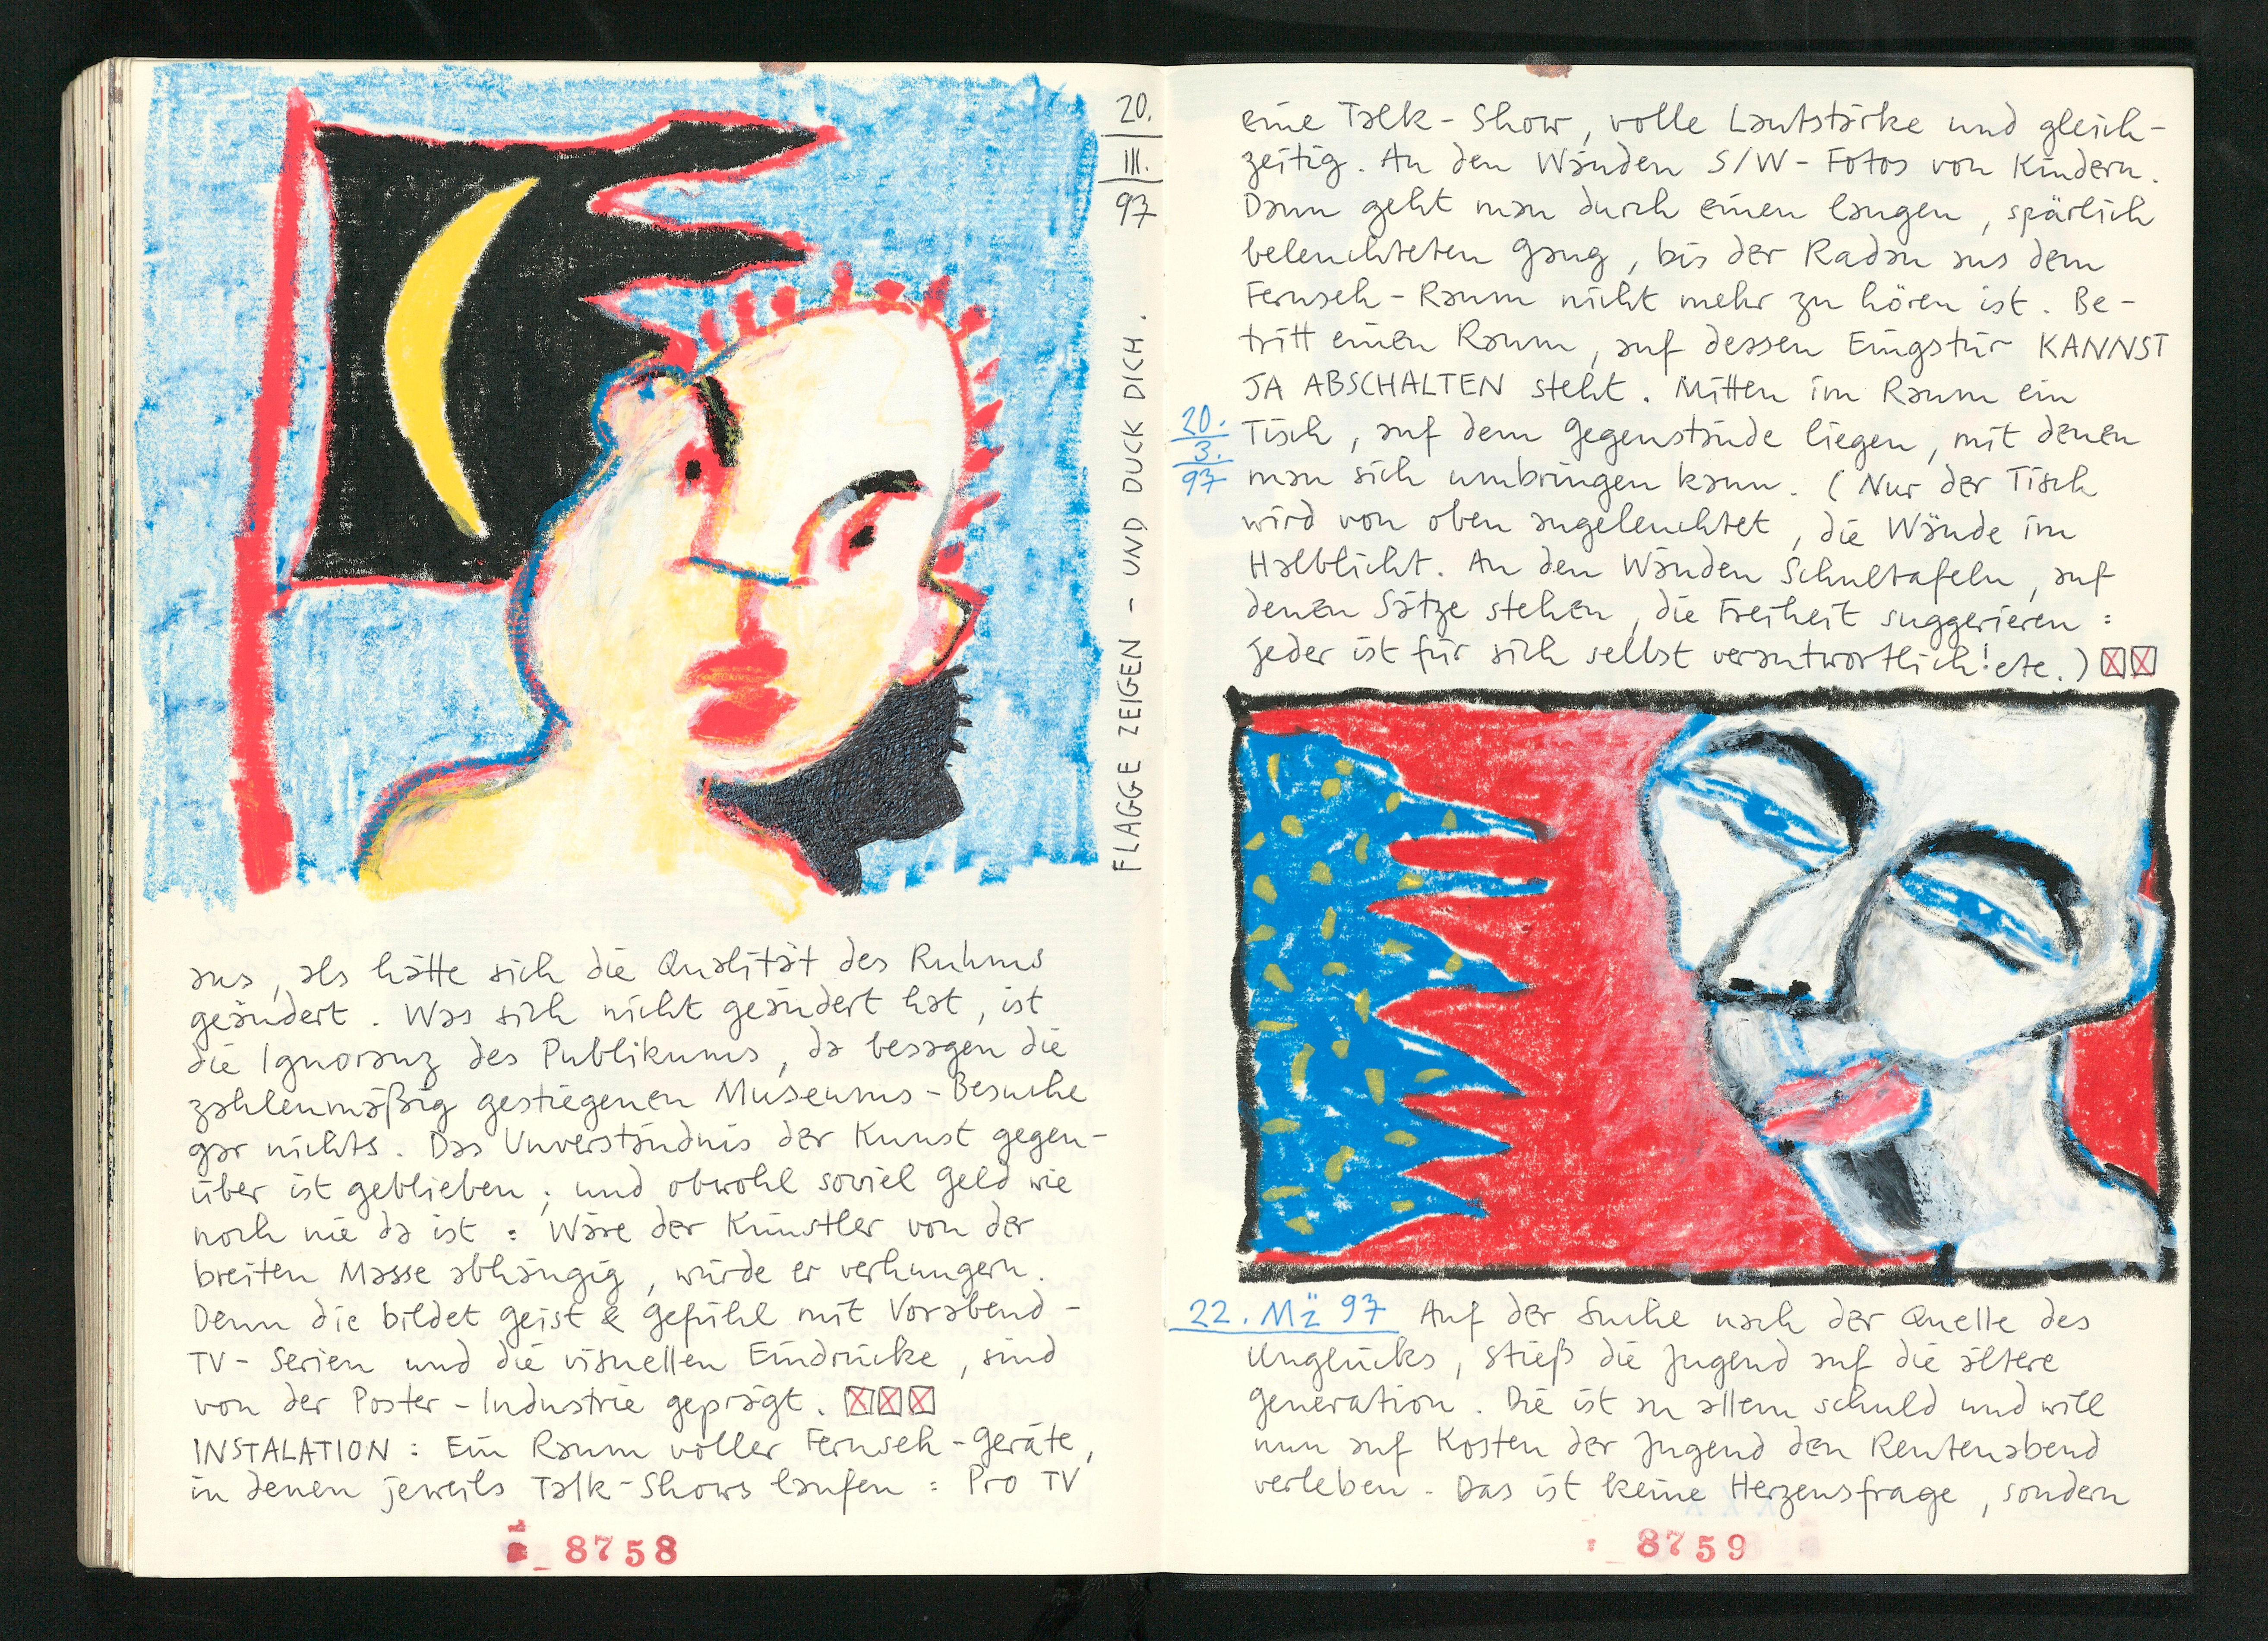 20.
III.
97
FLAGGE ZEIGEN - UND DUCK DICH.
aus, als hätte sich die Qualität des Ruhms
geändert. Was sich nicht geändert hat, ist
die Ignoranz des Publikums, da besagen die
zahlenmäßig gestiegenen Museums-Besuche
gar nichts. Das Unverständnis der Kunst gegen-
über ist geblieben; und obwohl soviel Geld wie
noch nie da ist: Wäre der Künstler von der
breiten Masse abhängig, würde er verhungern.
Denn die bildet Geist & Gefühl mit Vorabend-
TV-Serien und die visuellen Eindrücke, sind
von der Poster-Industrie geprägt.
INSTALATION: Ein Raum voller Fernseh-Geräte,
in denen jeweils Talk-Shows laufen: Pro TV
8758
eine Talk-Show, volle Lautstärke und gleich-
zeitig. An den Wänden S/W-Fotos von Kindern.
Dann geht man durch einen langen, spärlich
beleuchteten Gang, bis der Radau aus dem
Fernseh-Raum nicht mehr zu hören ist. Be-
tritt einen Raum, auf dessen Eingstür KANNST
JA ABSCHALTEN steht. Mitten im Raum ein
20.
3.
97
Tisch, auf dem Gegenstände liegen, mit denen
man sich umbringen kann. (Nur der Tisch
wird von oben angeleuchtet, die Wände im
Halblicht. An den Wänden Schultafeln, auf
denen Sätze stehen, die Freiheit suggerieren:
jeder ist für sich selbst verantwortlich! etc.)
22. Mä 97 Auf der Suche nach der Quelle des
Unglücks, stieß die Jugend auf die ältere
Generation. Die ist an allem schuld und will
nun auf Kosten der Jugend den Rentenabend
verleben. Das ist keine Herzensfrage, sondern
8759